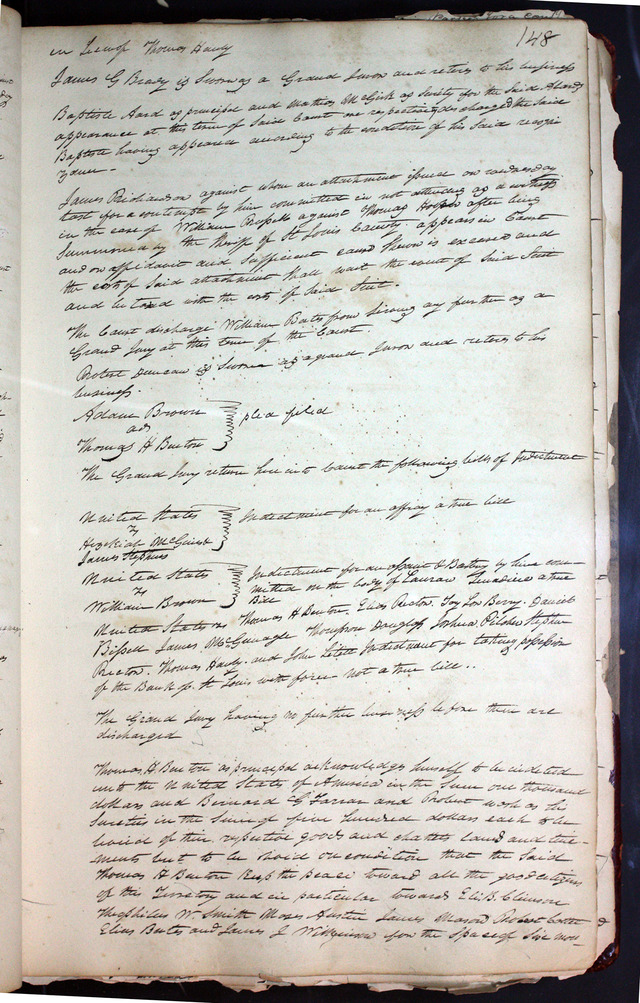 148
in Lieu of Thomas Hardy
James G Brady is Sworn as a Grand Juror and retires to his business
Baptiste Aard as principal and Mathias McGirk as Surety for the Said
appearance at this term of Said Court are respectively discharged the Said
Baptiste having appeared according to the condition of his Said recogni
zance -
James Richardson against whom an attachment issued on wednesday
last for a contempt by him committed in not attending as a witness
in the case of William Russell against Thomas after being
Summoned by the Sheriff of St Louis County appears in Court
and on affidavit and Sufficient cause Shewn is excused and
the cost of Said attachment Shall wait the event of Said Suit
and be taxed with the costs of Said Suit.
The Court discharge William Bates from Serving any further as a
Grand Jury at this term of the Court.
Robert Duncan is Sworn as a grand Juror and retires to his
business
Adam Brown
ads
Thomas H Benton
plea filed
The Grand Jury return here into Court the following bills of Indictment
United States
vs
Hezekiah McGuire
James Stephens
Indictment for an affray a true bill
United States
vs
William Brown
Indictment for an assault & Battery by him com-
mitted on the body of a true
Bill
United States vs Thomas H Benton, Elias Rector, Taylor Berry, Daniel
Bissell James McGunagle Thompson Douglass Joshua Pilcher Stephen
Rector, Thomas Hardy, and John Indictment for taking possession
of the Bank of St Louis with force not a true bill ..
The Grand Jury having no further business before them are
discharged
Thomas H Benton as principal acknowledges himself to be indebted
unto the United States of America in the Sum one thousand
dollars and Bernard G Farrar and Robert Wash as his
Sureties in the Sum of five hundred dollars each to be
levied of their respective goods and chattels lands and tene-
ments but to be void on condition that the Said
Thomas H Benton Keep the peace toward all the good citizens
of this Territory and in particular towards Eli B. Clemson
Theophilus W. Smith Moses Austin James Mason
Elias Bates and James J Wilkinson for the Space of Six mon-